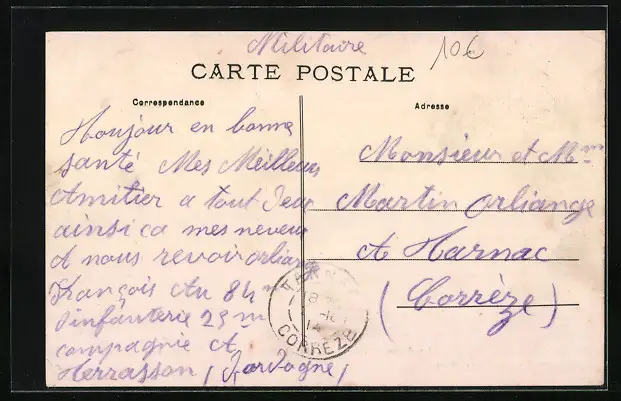 Militaire
10€
CARTE POSTALE
Correspondance
Adresse
Houjour en bonne
santé Mes Meilleurs
Amitier a tout Deux
ainsi ca mes neveux
A nous revoir orliange
François Au 84m
Dinfanterie 25m
compagnie A
Terrasson (Dordogne)
Monsieur et Mme
Martin Orliange
A Tarnac
(Corrèze)
TARNAC
18
14
CORREZE